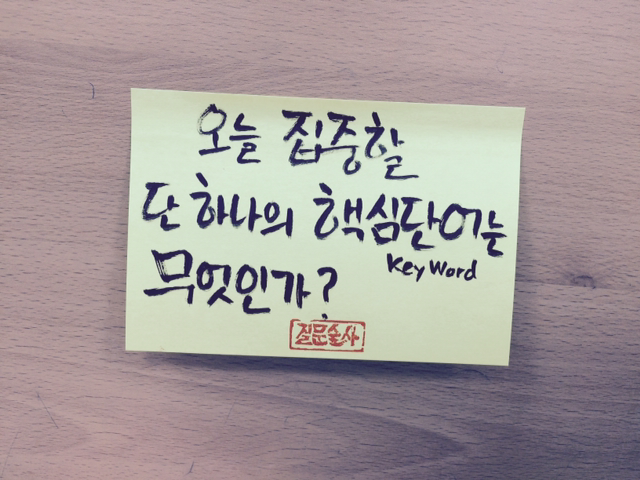 오늘 집중할
단 하나의 핵심단어는
Key Word
무엇인가?
질문술사